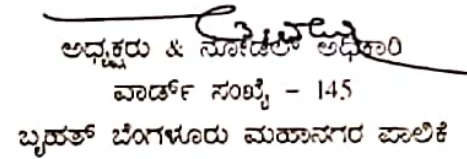 ಅಧ್ಯಕ್ಷರು & ನೋಡಲ್ ಅಧಿಕಾರಿ
ವಾರ್ಡ್ ಸಂಖ್ಯೆ - 145
ಬೃಹತ್ ಬೆಂಗಳೂರು ಮಹಾನಗರ ಪಾಲಿಕೆ